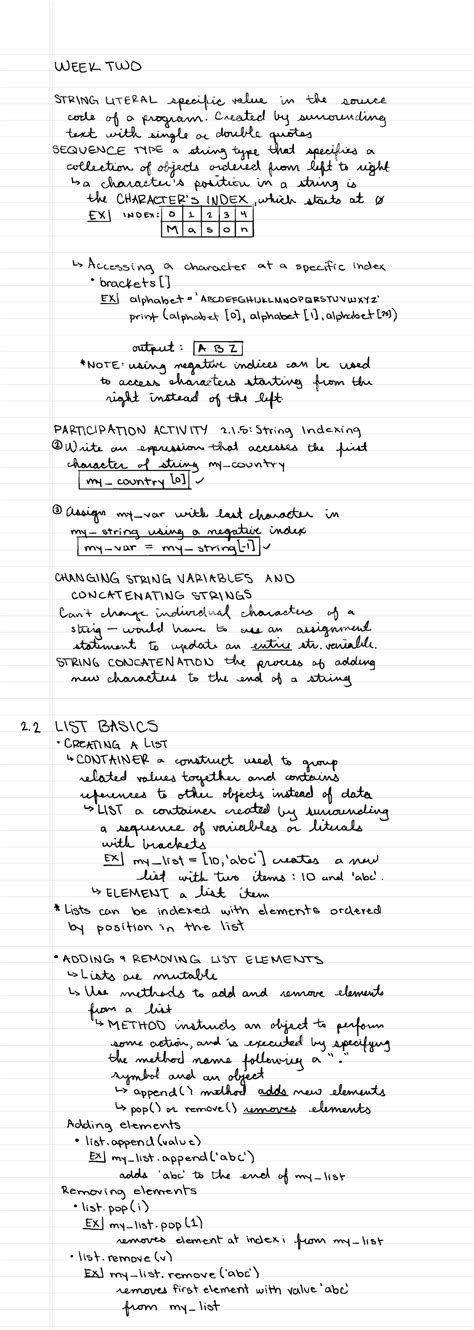 WEEK TWO
STRING LITERAL specific value in the source
code of a program. Created by surrounding
text with single or double quotes
SEQUENCE TYPE a string type that specifies a
collection of objects ordered from left to right
↳ a character's position in a string is
the CHARACTER'S INDEX, which starts at 0
EX| INDEX: 0 1 2 3 4
M a s o n
↳ Accessing a character at a specific index
• brackets []
EX| alphabet = 'ABCDEFGHIJKLMNOPQRSTUVWXYZ'
print (alphabet [0], alphabet [1], alphabet [25])
output: A B Z
*NOTE: using negative indices can be used
to access characters starting from the
right instead of the left.
PARTICIPATION ACTIVITY 2.1.5: String Indexing
② Write an expression that accesses the first
character of string my_country
my_country [0] ✓
③ Assign my_var with last character in
my_string using a negative index
my_var = my_string[-1] ✓
CHANGING STRING VARIABLES AND
CONCATENATING STRINGS
Can't change individual characters of a
string – would have to use an assignment
statement to update an entire str. variable.
STRING CONCATENATION the process of adding
new characters to the end of a string
2.2 LIST BASICS
• CREATING A LIST
↳ CONTAINER a construct used to group
related values together and contains
references to other objects instead of data
↳ LIST a container created by surrounding
a sequence of variables or literals
with brackets
EX| my_list = [10, 'abc'] creates a new
list with two items: 10 and 'abc'.
↳ ELEMENT a list item
* Lists can be indexed with elements ordered
by position in the list
• ADDING & REMOVING LIST ELEMENTS
↳ Lists are mutable
↳ Use methods to add and remove elements
from a list
↳ METHOD instructs an object to perform
some action, and is executed by specifying
the method name following a "."
symbol and an object
↳ append() method adds new elements
↳ pop() or remove() removes elements
Adding elements
• list.append(value)
EX| my_list.append('abc')
adds 'abc' to the end of my_list
Removing elements
• list.pop(i)
EX| my_list.pop(1)
removes element at index i from my_list
• list.remove(v)
EX| my_list.remove('abc')
removes first element with value 'abc'
from my_list